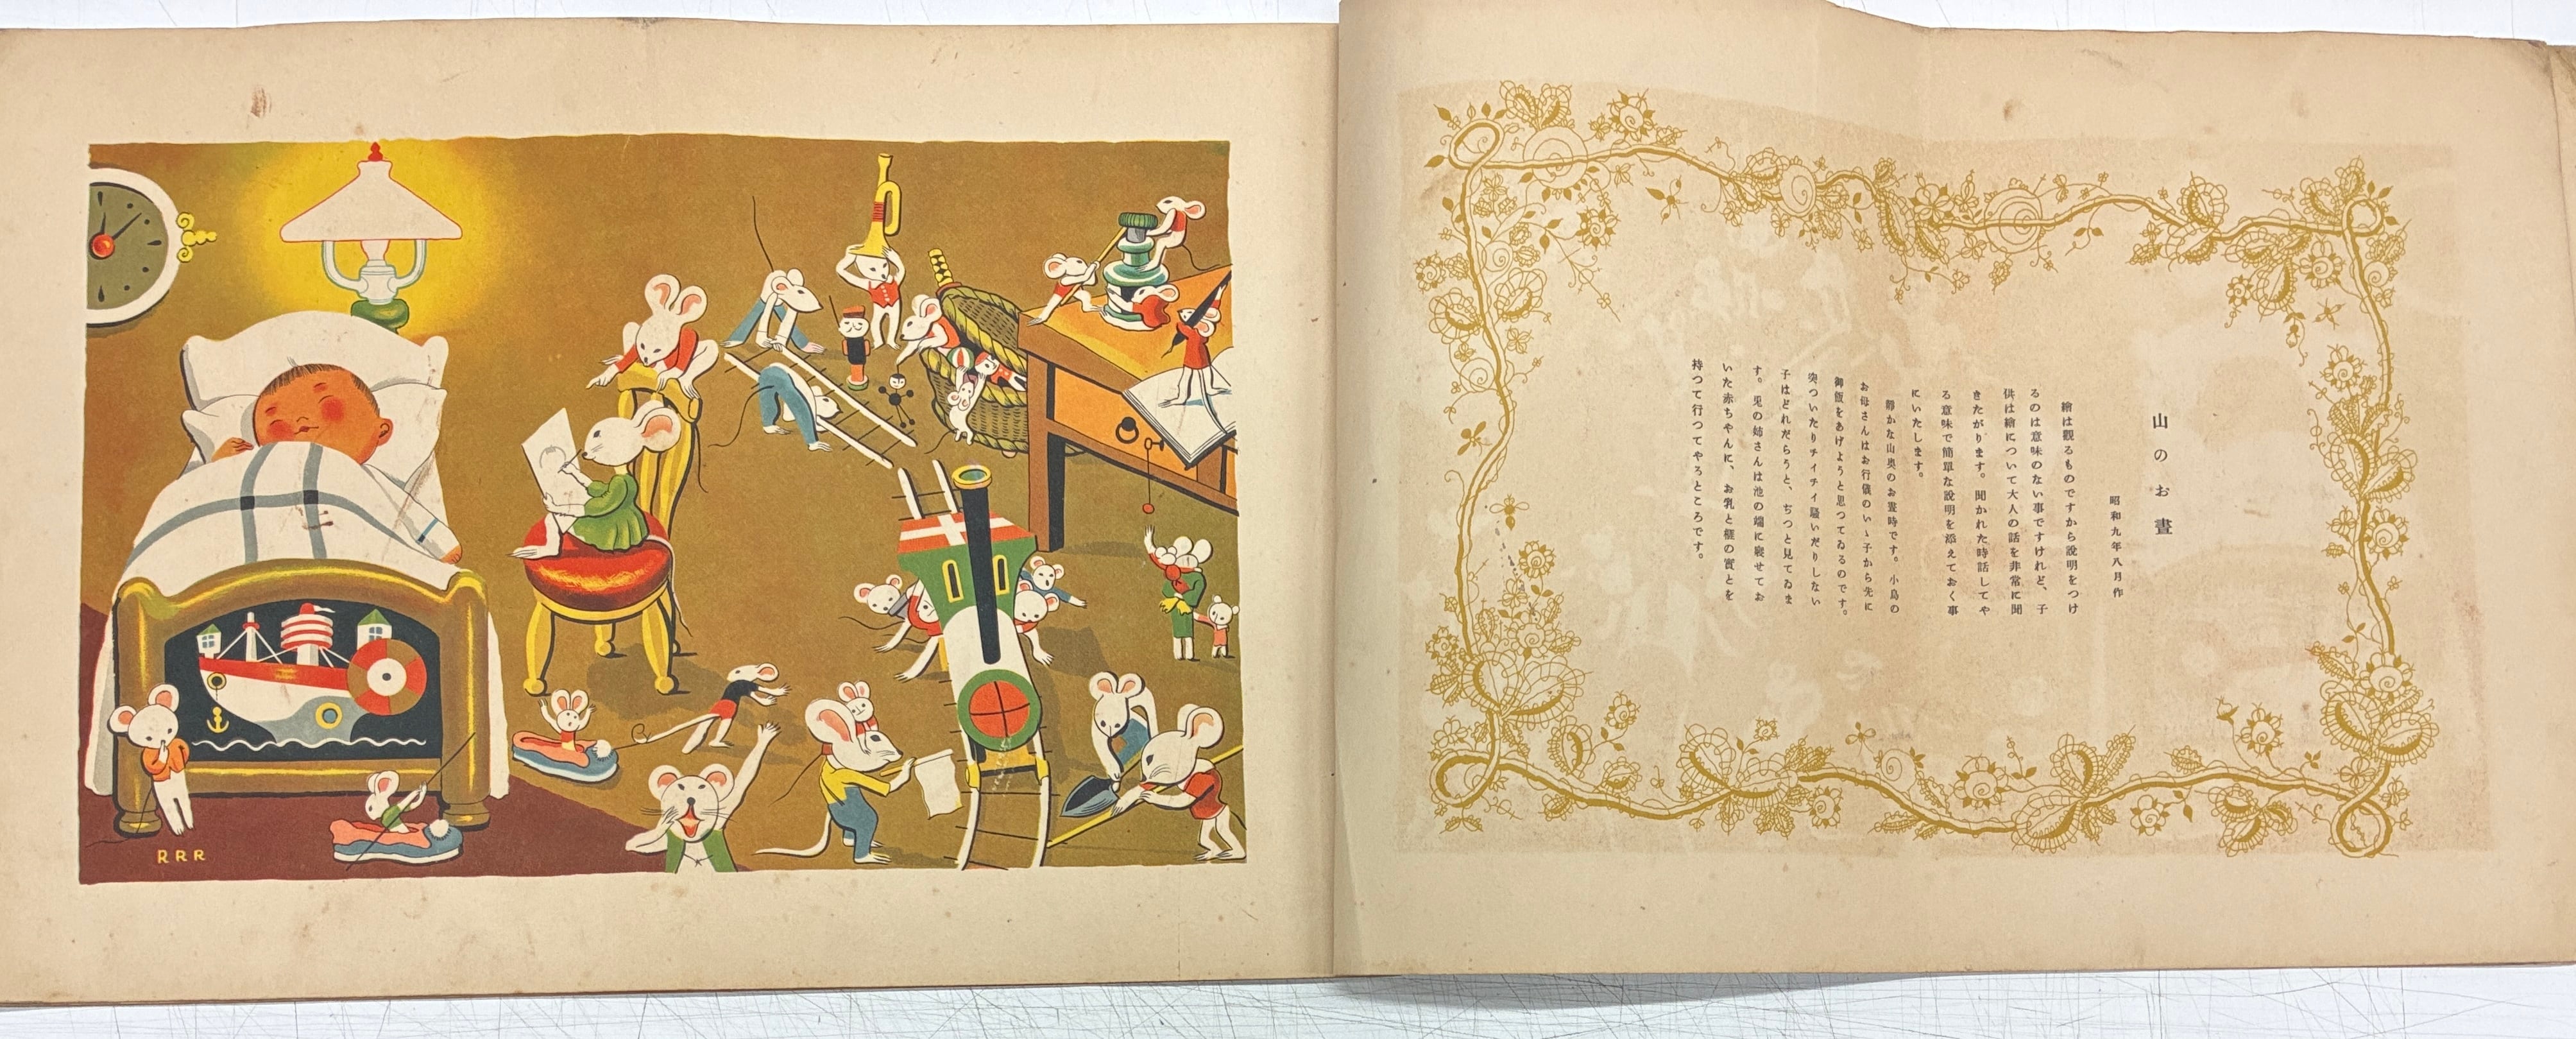 山のお晝
昭和九年八月作
繪は觀るものですから說明をつけ
るのは意味のない事ですけれど、子
供は繪について大人の話を非常に聞
きたがります。聞かれた時話してや
る意味で簡單な說明を添えておく事
にいたします。
靜かな山奥のお晝時です。小鳥の
お母さんはお行儀のいゝ子から先に
御飯をあげようと思つてゐるのです。
突ついたりチイチイ騷いだりしない
子はどれだらうと、ぢつと見てゐま
す。兎の姉さんは池の端に寢せてお
いた赤ちやんに、お乳と榧の實とを
持つて行つてやるところです。
RRR